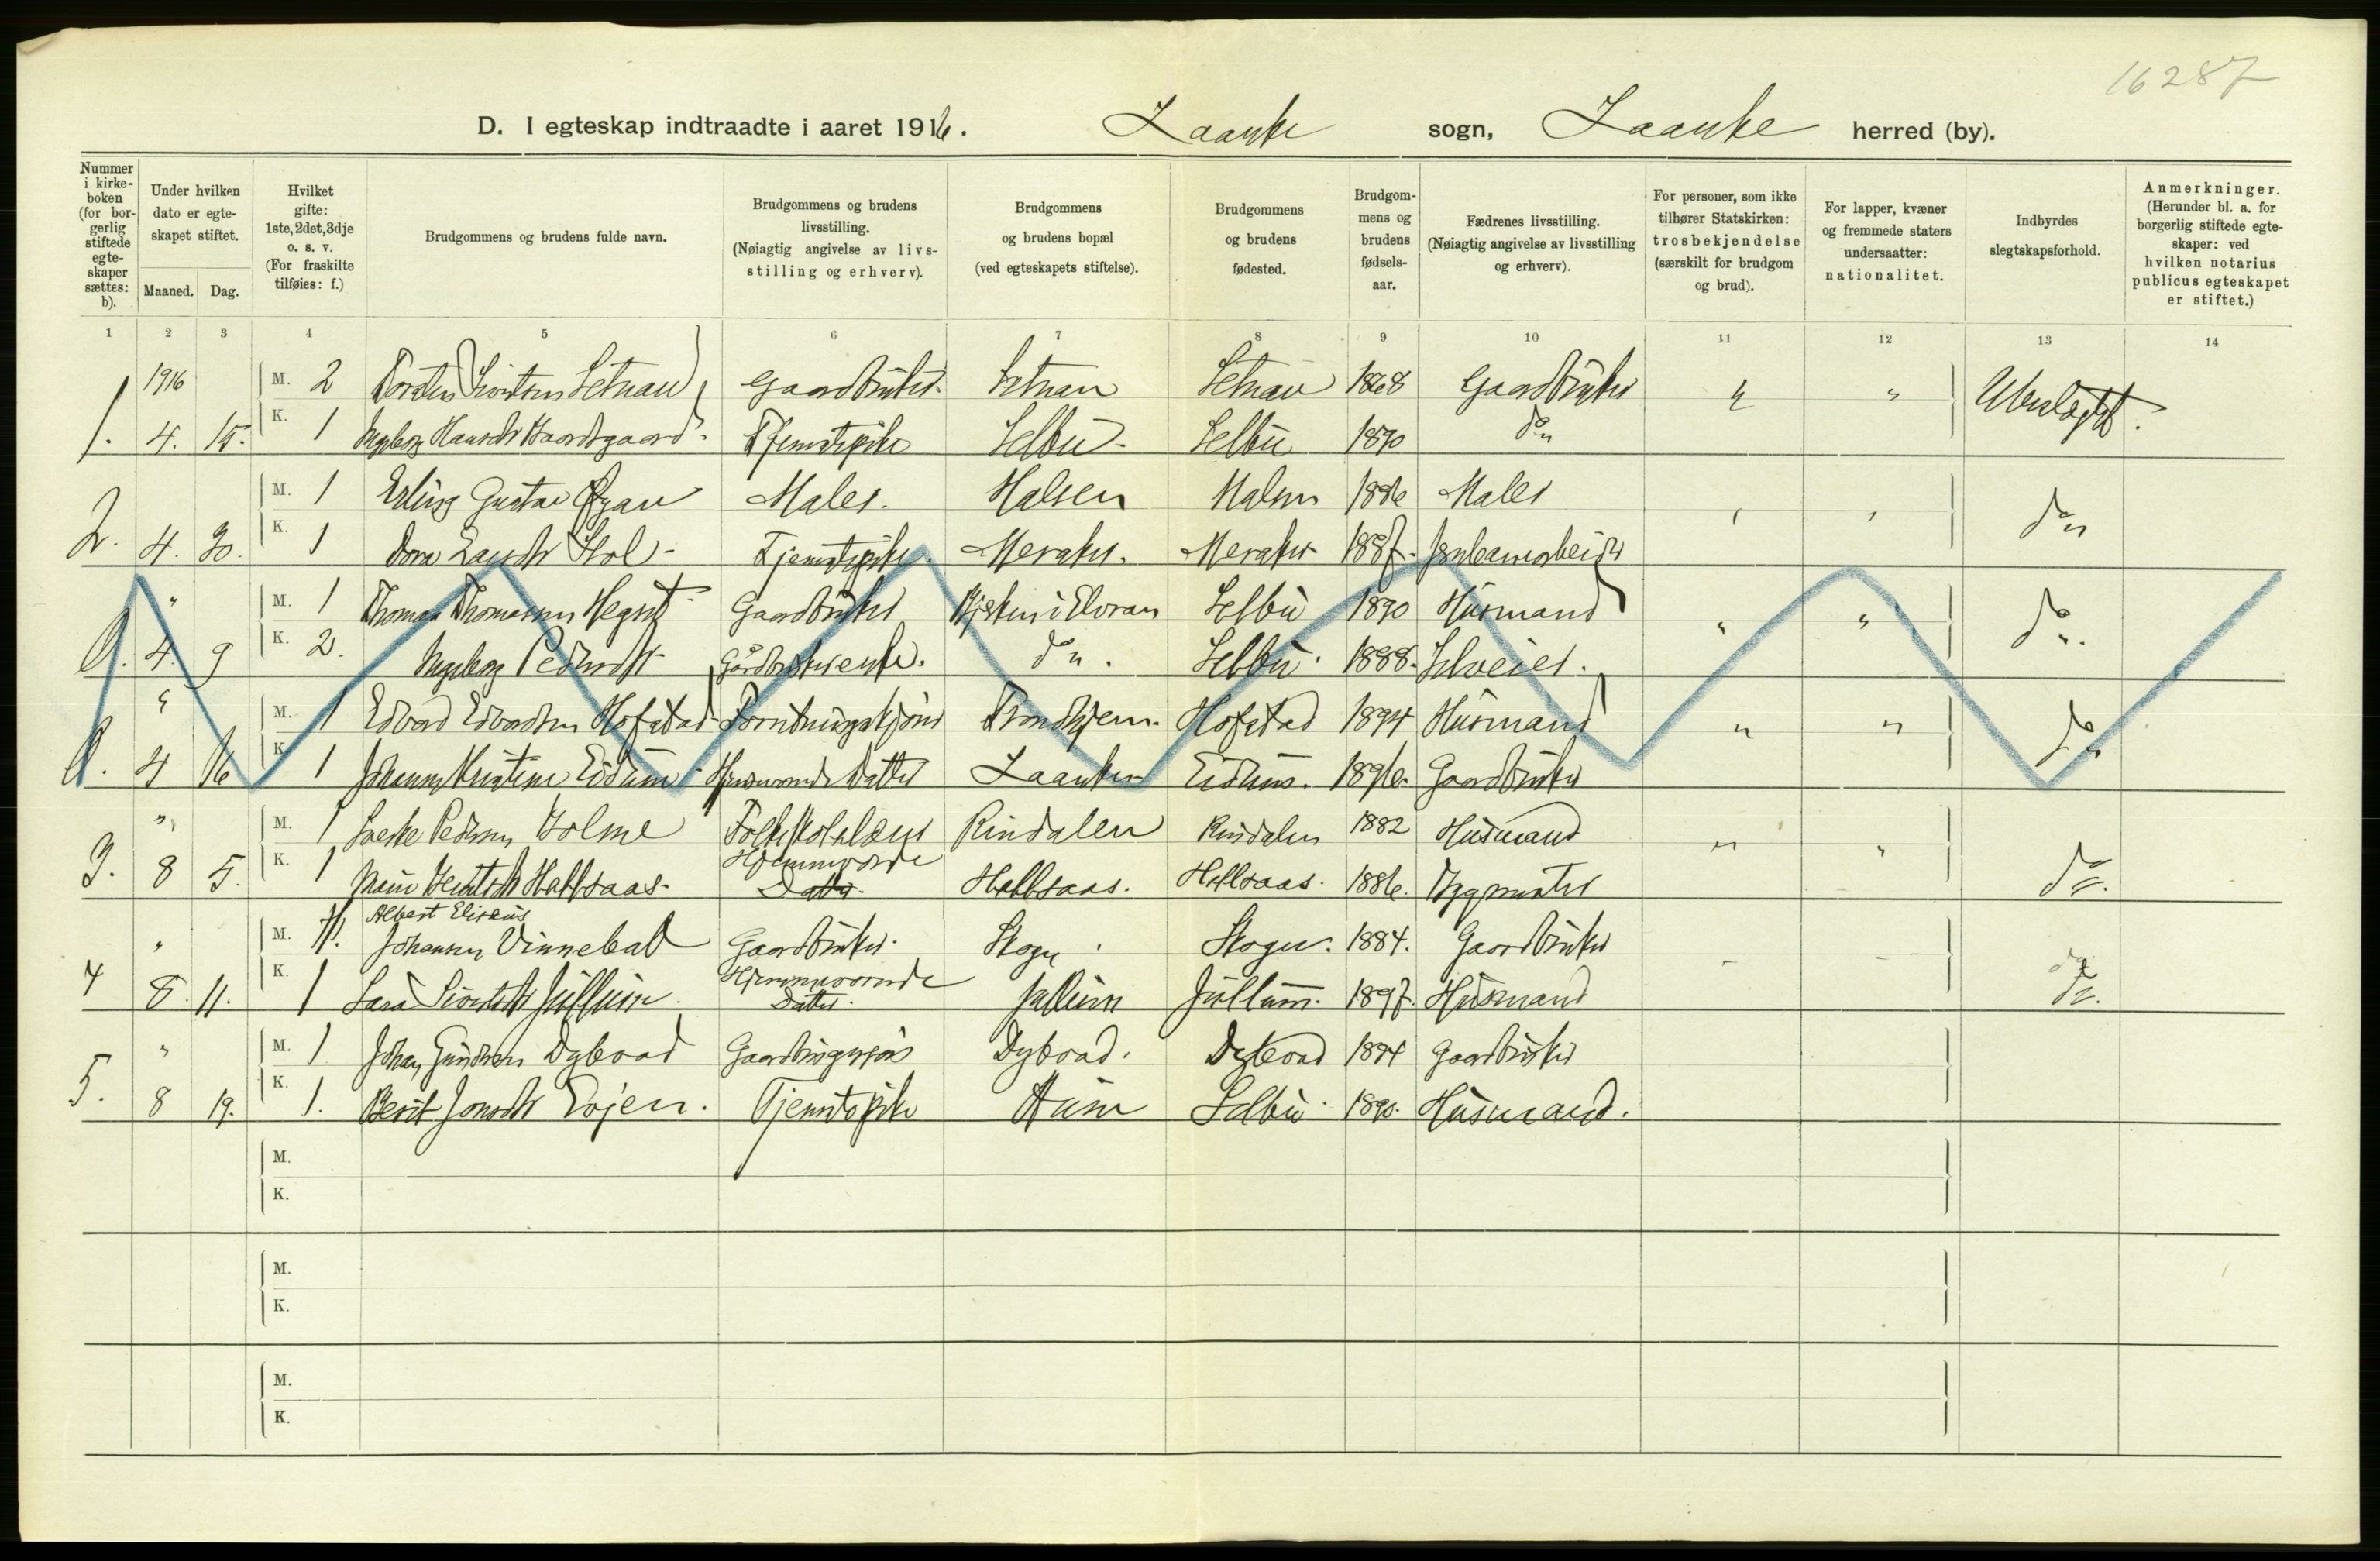 16287
D. I egteskap indtraadte i aaret 1916. Laanke sogn, Laanke herred (by).
Nummer i kirkeboken (for borgerlig stiftede egteskaper sættes: b).
Under hvilken dato er egteskapet stiftet.
Maaned. Dag.
Hvilket gifte: 1ste, 2det, 3dje o. s. v. (For fraskilte tilføies: f.)
Brudgommens og brudens fulde navn.
Brudgommens og brudens livsstilling. (Nøiagtig angivelse av livsstilling og erhverv).
Brudgommens og brudens bopæl (ved egteskapets stiftelse).
Brudgommens og brudens fødested.
Brudgommens og brudens fødselsaar.
Fædrenes livsstilling. (Nøiagtig angivelse av livsstilling og erhverv).
For personer, som ikke tilhører Statskirken: trosbekjendelse (særskilt for brudgom og brud).
For lapper, kvæner og fremmede staters undersaatter: nationalitet.
Indbyrdes slegtskapsforhold.
Anmerkninger. (Herunder bl. a. for borgerlig stiftede egteskaper: ved hvilken notarius publicus egteskapet er stiftet.)
1 2 3 4 5 6 7 8 9 10 11 12 13 14
1916 M. 2 Setnan Gaardbruker Setnan Setnan 1868 Gaardbruker " " Ubeslægtet.
1. 4. 15. K. 1 Ingeborg Hansdtr Tjenestepike Selbu Selbu 1890 do
M. 1 Erling Gustav Øyan Maler. Halsen Malm 1886 Maler do
2. 4. 30. K. 1 Dora Stol Tjenestepike. Meraker. Meraker 1887.
" M. 1 Thomas Thomassen Hegset Gaardbruker Selbu 1890 Husmand " " do.
4. 9 K. 2. Ingeborg Pedersdtr Gårdbrukerenke. do. Selbu. 1888. Selveier.
" M. 1 Edvard Edvardsen Hofstad Trondhjem. Hofstad 1894 Husmand " " do
4 16 K. 1 Johanna Kristine Eidum Hjemmevær. Datter Laanke Eidum. 1896. Gaardbruker
" M. 1 Pedersen Holme Folkeskolelærer Rindalen Rindalen 1882 Husmand " " do.
3. 8 5. K. 1 Hallsaas. Hjemmevær. Datter. Hallsaas. Hallsaas. 1886. Bygmester
" M. Albert Eliseus
Johansen Vinnebal Gaardbruker. Skogn. Skogn. 1884. Gaardbruker do.
4 8. 11. K. 1 Sara Sivertsdtr Julluin Hjemmevær. Datter. Jullum Jullum. 1897. Husmand
" M. 1 Johan Dybvad Gaardbrugersøn Dybvad. Dybvad 1894 Gaardbruker
5. 8 19. K. 1. Berit Jonsdtr Evjen. Tjenestepike Selbu. 1890. Husmand.
M.
K.
M.
K.
M.
K.